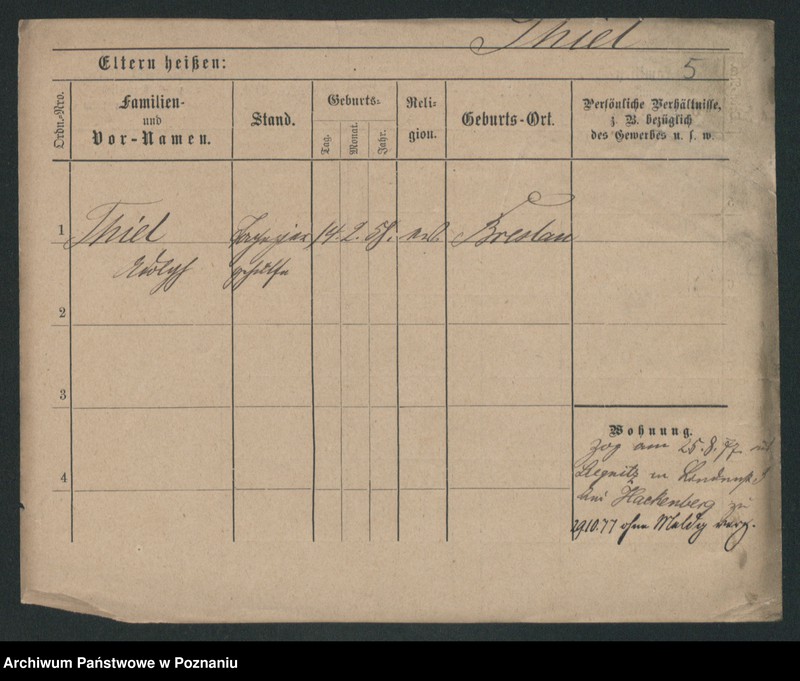 Thiel
Eltern heißen:
5
Ordn.-Nro.
Familien-
und
Vor-Namen.
Stand.
Geburts-
Tag.
Monat.
Jahr.
Reli-
gion.
Geburts-Ort.
Persönliche Verhältnisse,
z. B. bezüglich
des Gewerbes u. s. w.
1 Thiel 14. 2. 58. Breslau
Adolph gehülfe
2
3
4
Wohnung.
zog am 25.8.77. aus
Liegnitz in
bei Hackenberg zu
29.10.77 ohne Meldg verz.
Archiwum Państwowe w Poznaniu